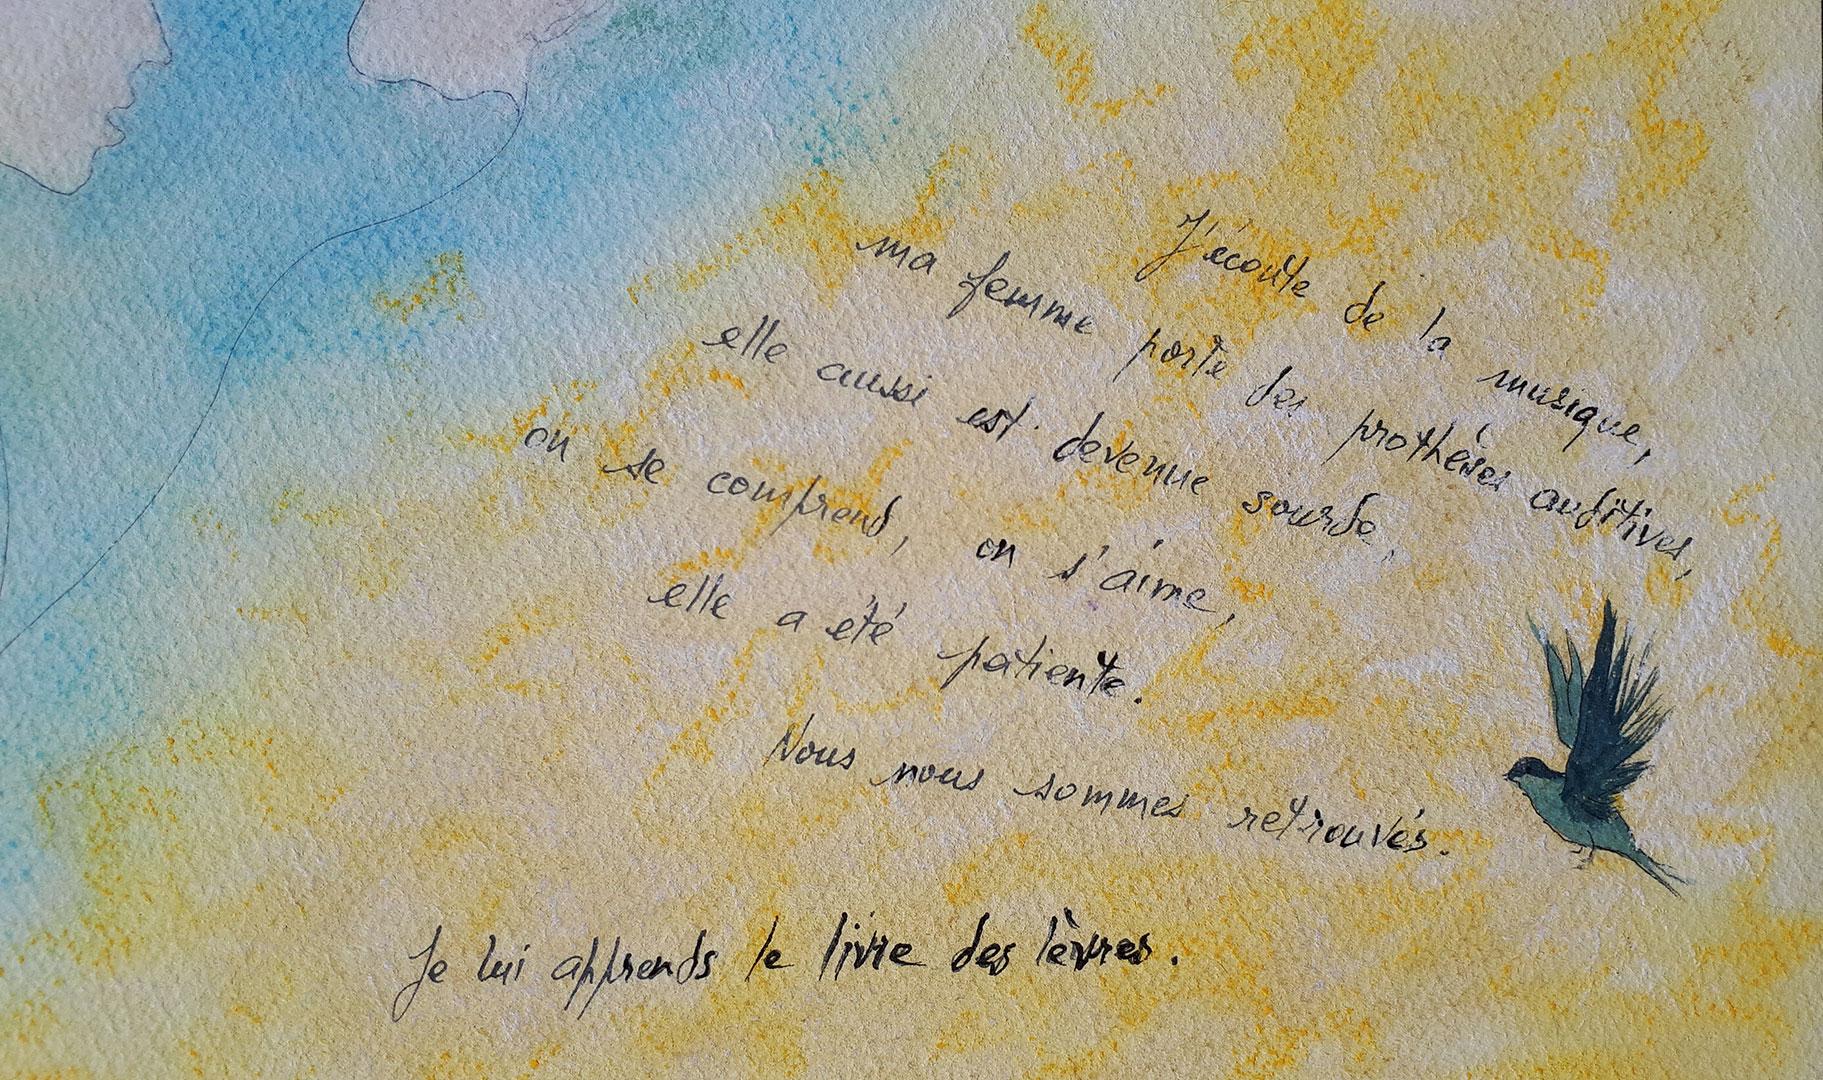 J'écoute de la musique,
ma femme porte des prothèses auditives,
elle aussi est devenue sourde,
on se comprend, on s'aime,
elle a été patiente.
Nous nous sommes retrouvés.
Je lui apprends le livre des lèvres.